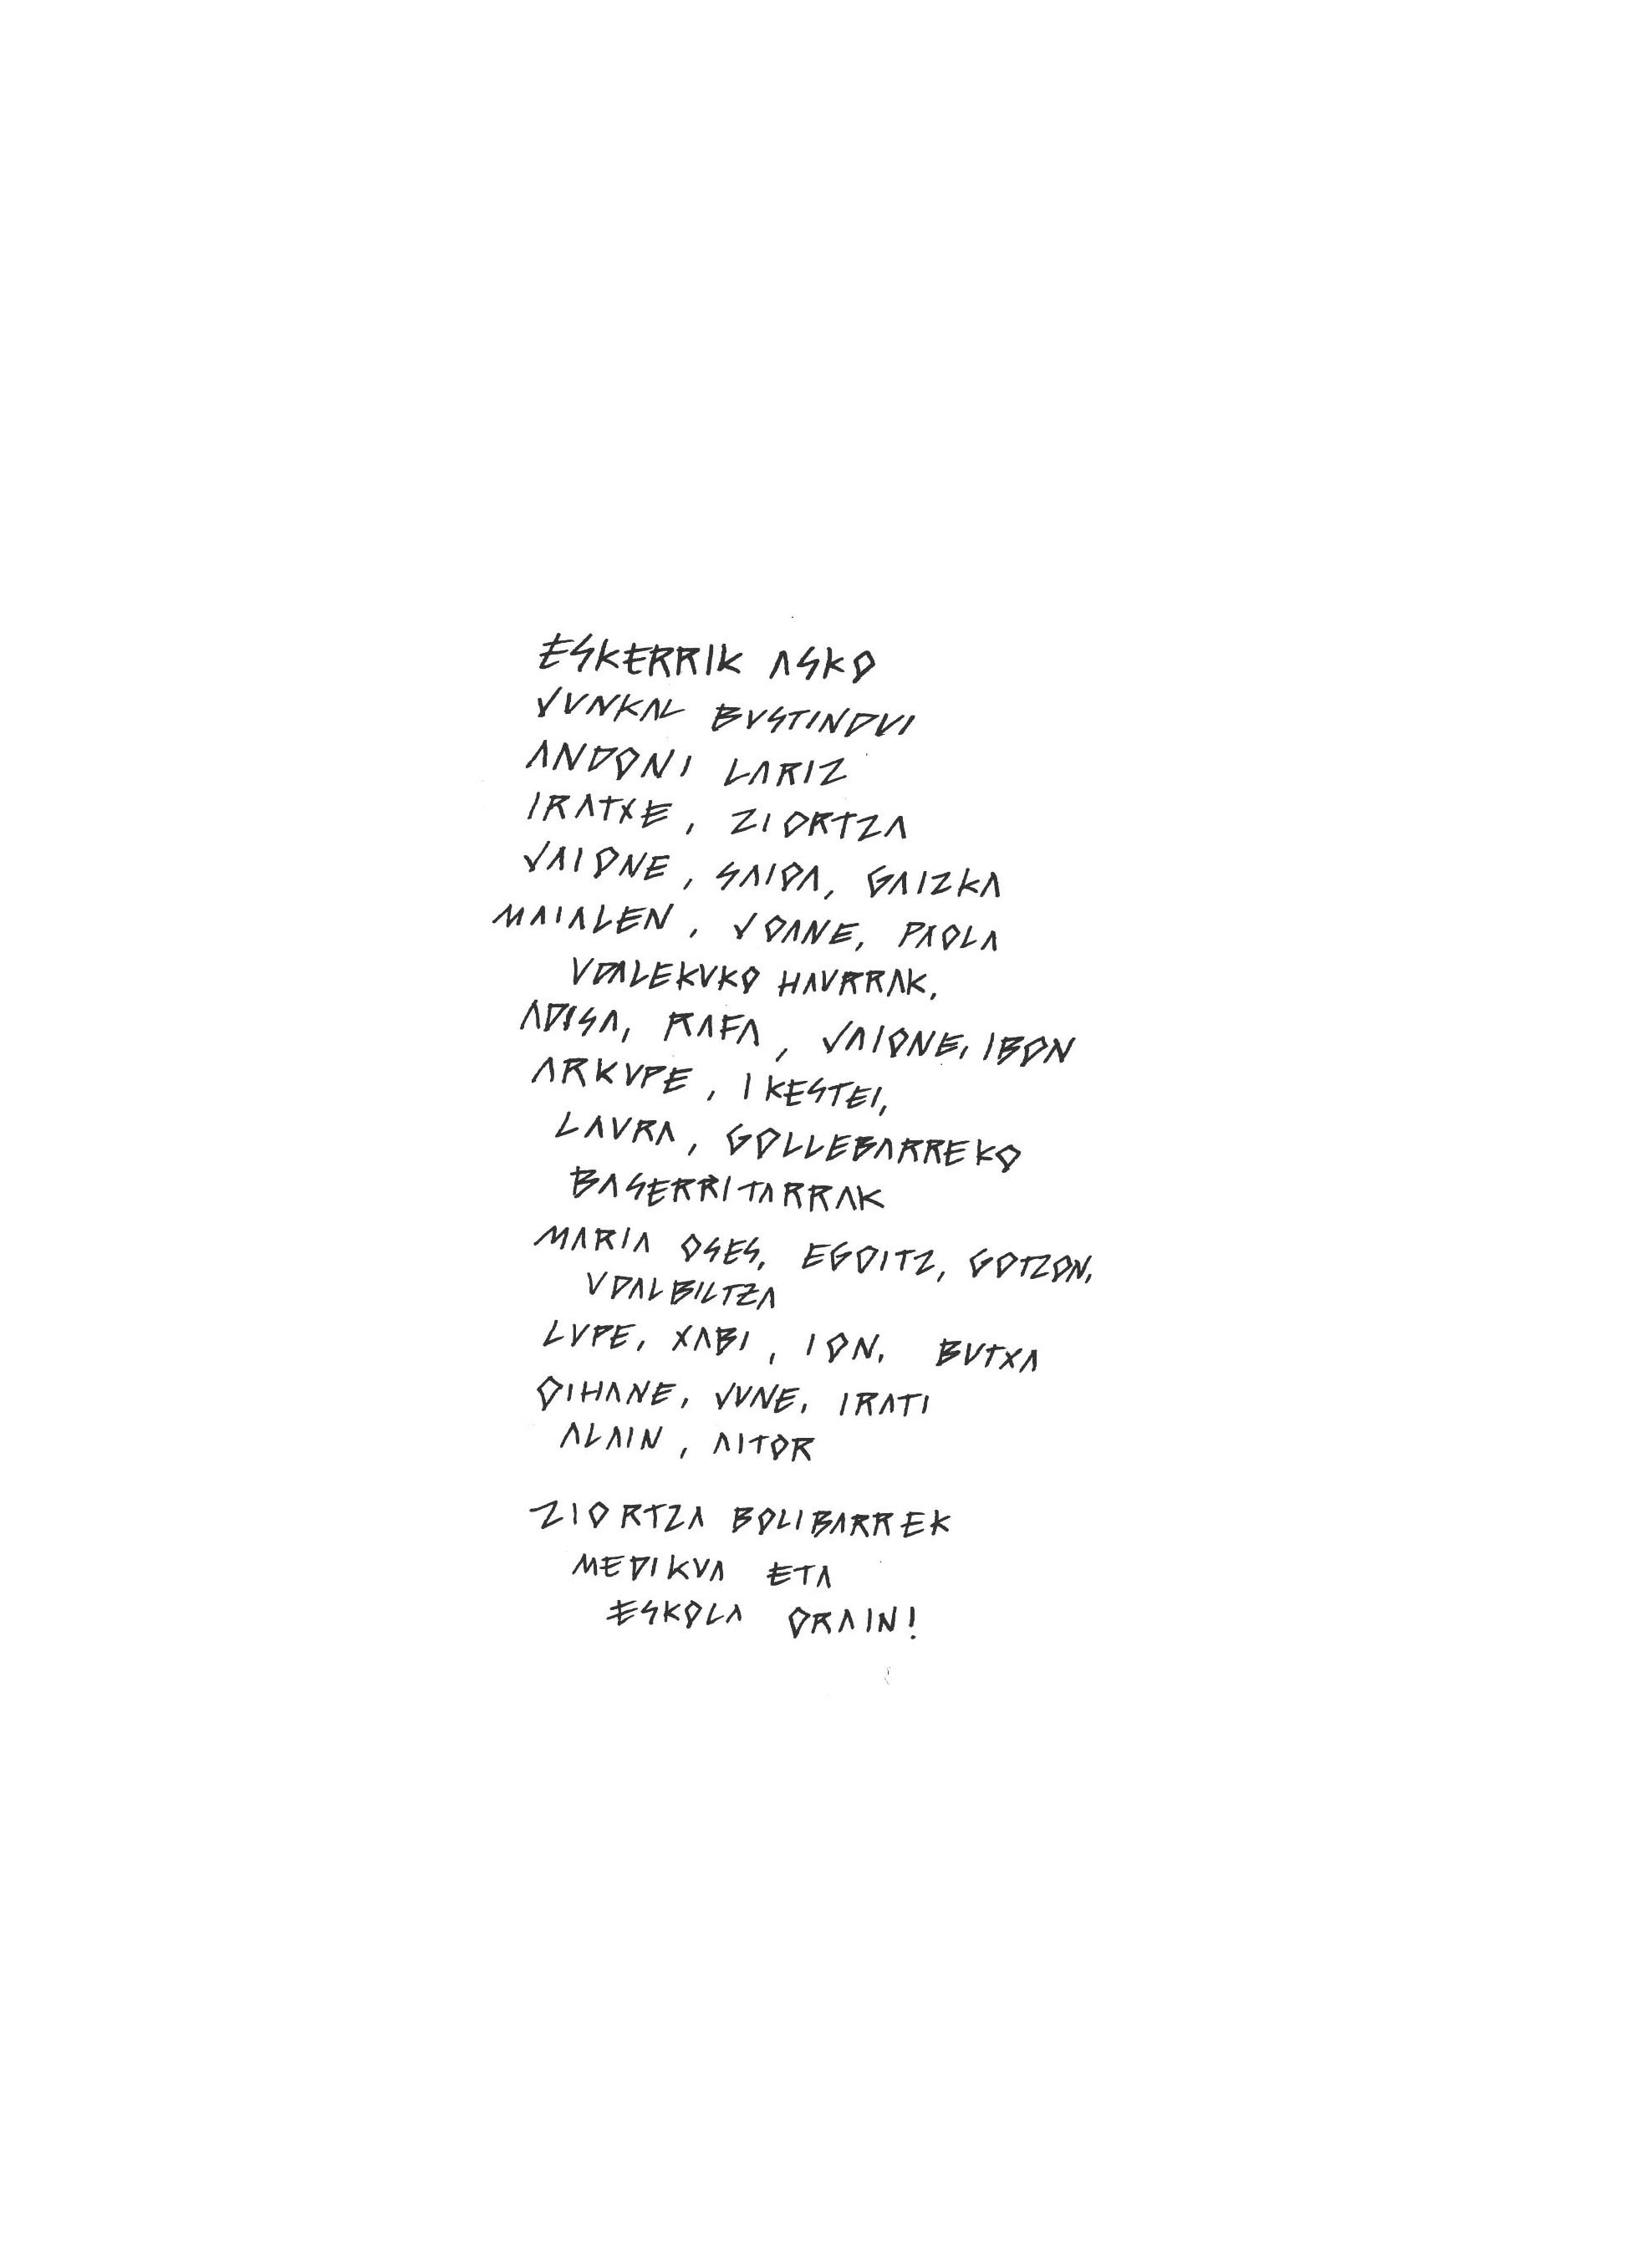 ESKERRIK ASKO
JUNKAL BUSTINDUI
ANDONI LARIZ
IRATXE, ZIORTZA
JAIONE, SAIOA, GAIZKA
MAIALEN, JOANE, PAOLA
UDALEKUKO HAURRAK,
ADISA, RAFA, JAIONE, IBON
ARKUPE, IKESTEI,
LAURA, GOLLEBARREKO
BASERRITARRAK
MARIA OSES, EGOITZ, GOTZON,
UDALBILTZA
LUPE, XABI, ION, BUTXA
OIHANE, JUNE, IRATI
ALAIN, AITOR
ZIORTZA BOLIBARREK
MEDIKUA ETA
ESKOLA ORAIN!